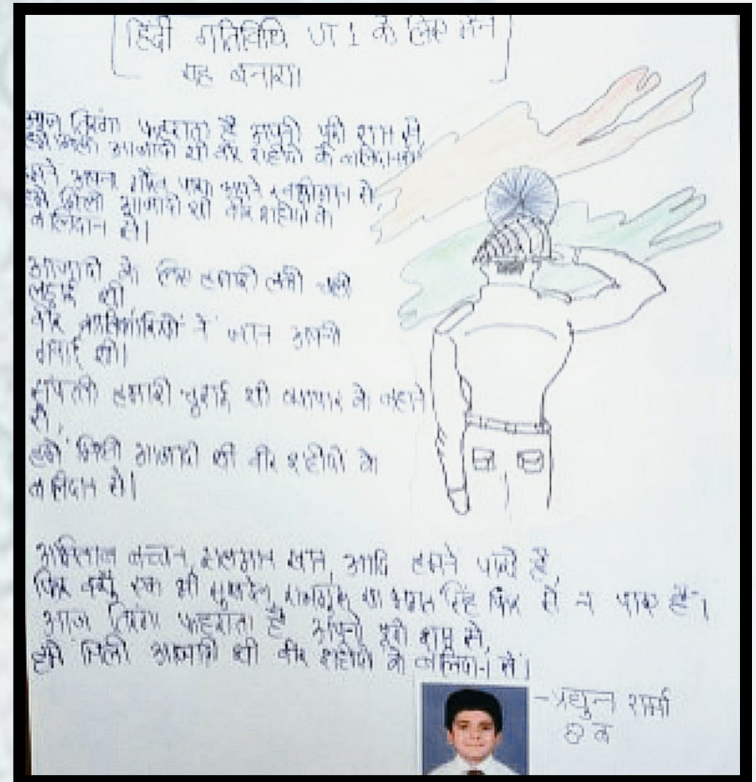 हिंदी गतिविधि UT 1 के लिए मैंने
यह बनाया।
आज तिरंगा फहराता है अपनी पूरी शान से,
हमें मिली आजादी थी वीर शहीदों के बलिदान से।
हमें मिली आजादी थी वीर शहीदों के
बलिदान से।
आजादी के लिए हमारी लंबी चली
लड़ाई थी
वीर क्रांतिकारियों ने जान अपनी
गंवाई थी।
हमारी चुराई थी व्यापार के बहाने
से,
हमें मिली आजादी थी वीर शहीदों के
बलिदान से।
अमिताभ बच्चन, सलमान खान, आदि हमने पाये हैं,
फिर क्यूँ एक भी सुखदेव, राजगुरु या भगत सिंह फिर से न पाए हैं।
आज तिरंगा फहराता है अपनी पूरी शान से,
हमें मिली आजादी थी वीर शहीदों के बलिदान से।
शर्मा